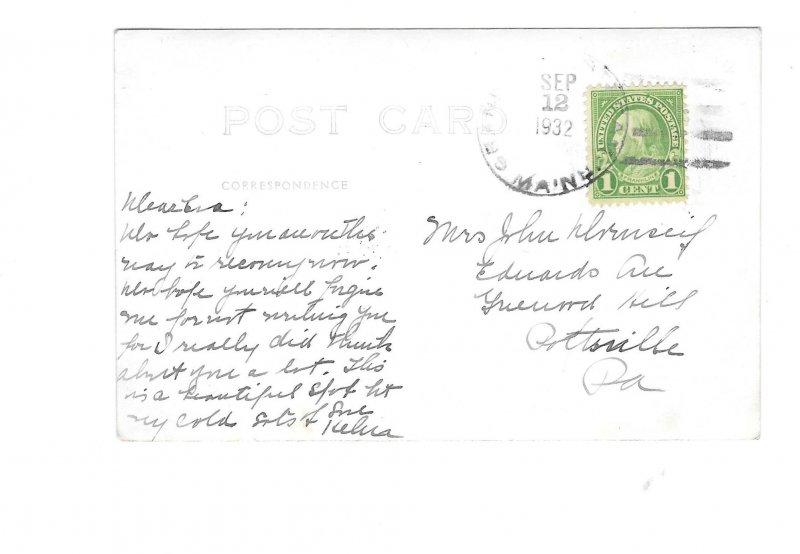 POST CARD
SEP
12
1932
MAINE
UNITED STATES POSTAGE
FRANKLIN
1 CENT 1
CORRESPONDENCE
Dear Eva:
Do hope you are on the
way to recovery now.
Do hope you will forgive
me for not writing you
for I really did think
about you a lot. This
is a beautiful spot but
very cold Lots of Love
Helena
Mrs John
Edwards Ave
Greenwood Hill
Pottsville
Pa